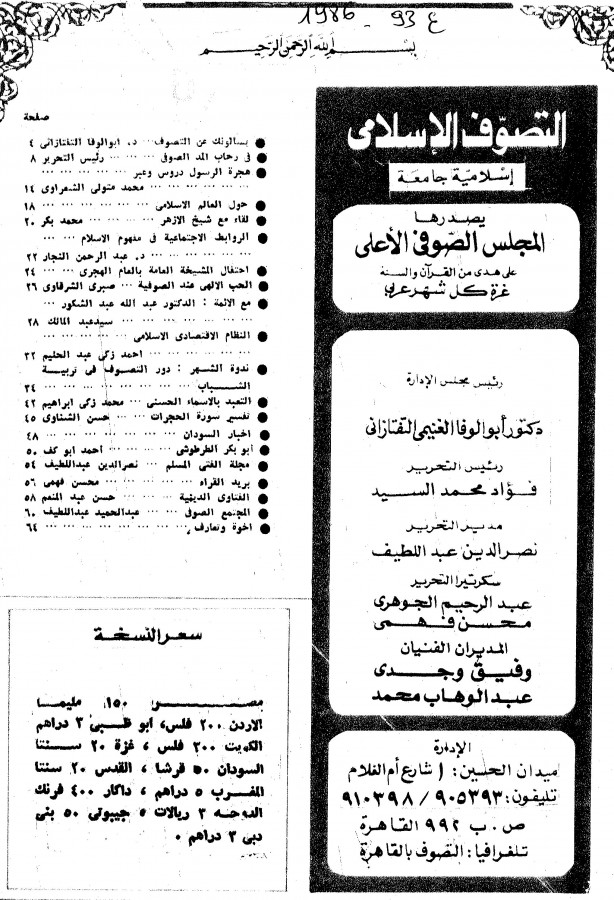 ع 93 - 1986
بسم الله الرحمن الرحيم
التصوف الإسلامى
إسلامية جامعة
يصدرها
المجلس الصوفى الأعلى
على هدى من القرآن والسنة
غرة كل شهر عربى
رئيس مجلس الإدارة
دكتور أبو الوفا الغنيمى التفتازانى
رئيس التحرير
فؤاد محمد السيد
مدير التحرير
نصر الدين عبد اللطيف
سكرتيرا التحرير
عبد الرحيم الجوهرى
محسن فهمى
المديران الفنيان
وفيق وجدى
عبد الوهاب محمد
الإدارة
ميدان الحسين: ١ شارع أم الغلام
تليفون: ٩٠٥٣٩٣ / ٩١٠٣٩٨
ص . ب ٩٩٢ القاهرة
تلغرافيا: التصوف بالقاهرة
صفحة
● يسالونك عن التصوف ... د. ابوالوفا التفتازانى ٤
● فى رحاب المد الصوفى ... ... رئيس التحرير ٨
● هجرة الرسول دروس وعبر ... ... ... ...
... ... ... ... ... محمد متولى الشعراوى ١٤
● حول العالم الاسلامى ... ... ... ... ... ١٨
● لقاء مع شيخ الازهر ... ... ... محمد بكر ٢٠
● الروابط الاجتماعية فى مفهوم الاسلام ... ...
... ... ... ... ... د. عبد الرحمن النجار ٢٢
● احتفال المشيخة العامة بالعام الهجرى ... ... ٢٤
● الحب الالهى عند الصوفية ... صبرى الشرقاوى ٢٦
● مع الائمة : الدكتور عبد الله عبد الشكور ...
... ... ... ... ... ... سيد عبد المالك ٢٨
● النظام الاقتصادى الاسلامى ... ... ... ...
... ... ... ... ... احمد زكى عبد الحليم ٣٢
● ندوة الشهر : دور التصوف فى تربية
الشباب ... ... ... ... ... ... ... ٣٤
● التعبد بالاسماء الحسنى ... محمد زكى ابراهيم ٤٢
● تفسير سورة الحجرات ... ... حسن الشناوى ٤٥
● اخبار السودان ... ... ... ... ... ... ٤٨
● ابو بكر الطرطوشى ... ... ... احمد ابو كف ٥٠
● مجلة الفتى المسلم ... نصر الدين عبداللطيف ٥٤
● بريد القراء ... ... ... ... محسن فهمى ٥٦
● الفتاوى الدينية ... ... حسن عبد المنعم ٥٨
● المجتمع الصوفى ... ... عبدالحميد عبداللطيف ٦٠
● اخوة وتعارف ... ... ... ... ... ... ٦٤
سعر النسخة
مصــــر ١٥٠ مليما
الاردن ٢٠٠ فلس، ابو ظبى ٣ دراهم
الكويت ٢٠٠ فلس ، غزة ٢٠ سنتا
السودان ٥٠ قرشا ، القدس ٢٠ سنتا
المغرب ٥ دراهم ، داكار ٤٠٠ فرنك
الدوحه ٣ ريالات ٥ جيبوتى ٥٠ بنى
دبى ٣ دراهم .